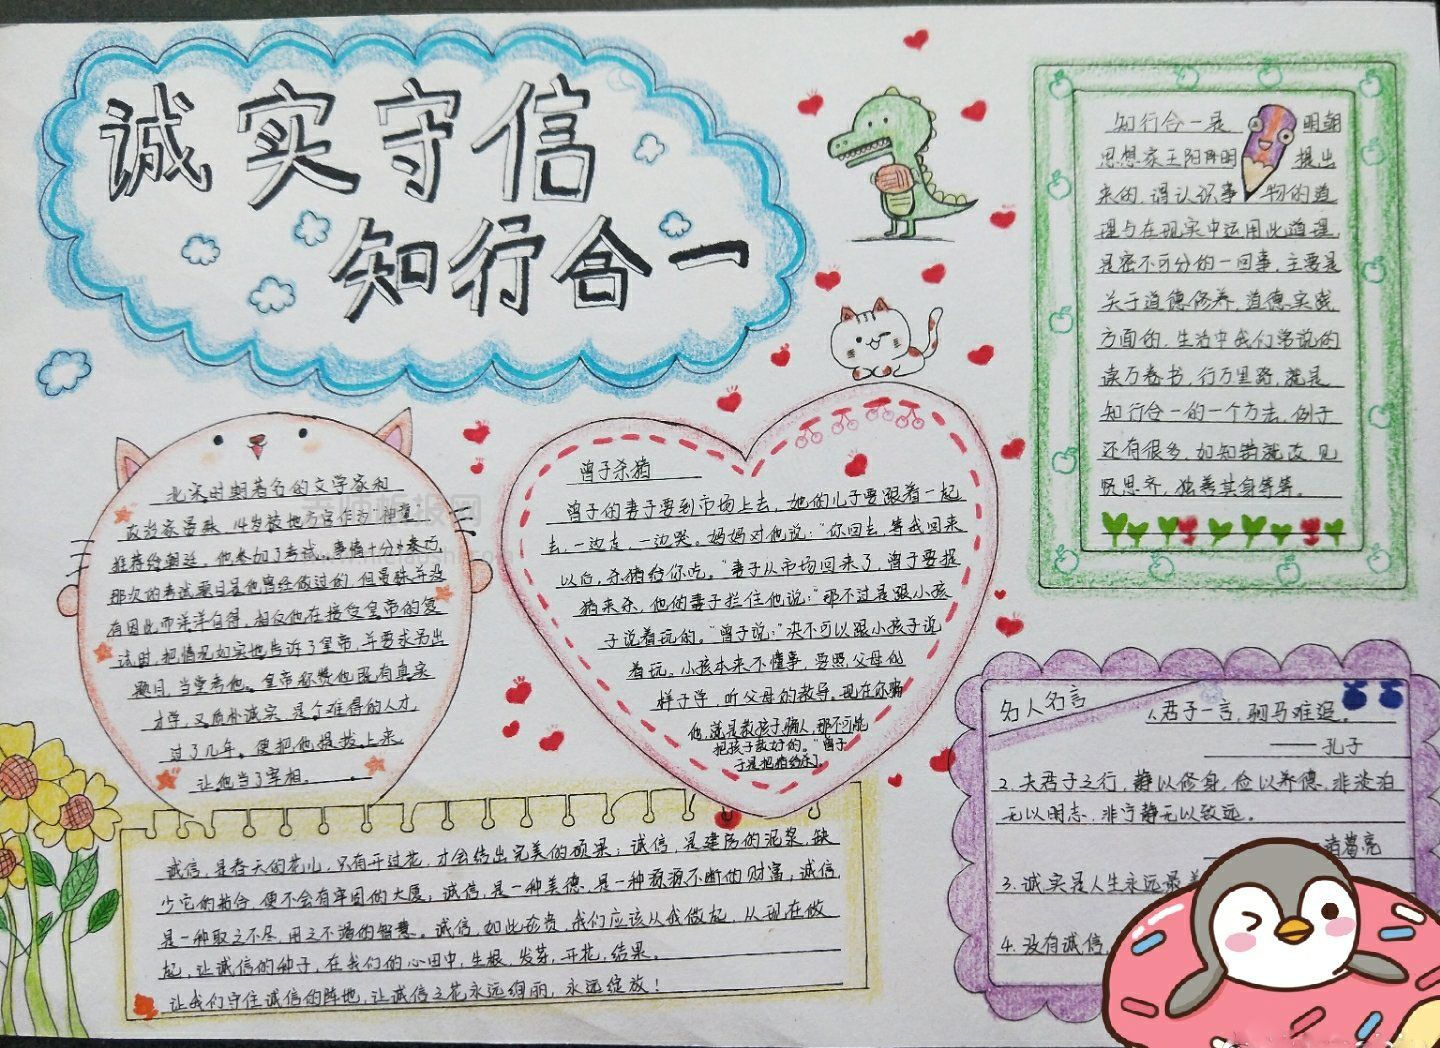 诚实守信
知行合一
北宋时期著名的文学家和
政治家晏殊，14岁被地方官作为"神童"
推荐给朝廷。他参加了考试。事情十分凑巧，
那次的考试题目是他曾经做过的，但晏殊并没
有因此而洋洋自得，相反他在接受皇帝的复
试时，把情况如实地告诉了皇帝，并要求另出
题目，当堂考他。皇帝称赞他既有真实
才学，又质朴诚实，是个难得的人才，
过了几年。便把他提拔上来，
让他当了宰相。
曾子杀猪
曾子的妻子要到市场上去，她的儿子要跟着一起
去，一边走，一边哭。妈妈对他说："你回去，等我回来
以后，杀猪给你吃。"妻子从市场回来了，曾子要捉
猪来杀，他的妻子拦住他说："那不过是跟小孩
子说着玩的。"曾子说："决不可以跟小孩子说
着玩。小孩本来不懂事，要照父母的
样子学，听父母的教导。现在你骗
他，就是教孩子骗人，那不可能
把孩子教好的。"曾子
于是把猪给杀了。
知行合一是 明朝
思想家王阳明 提出
来的，谓认识事 物的道
理与在现实中运用此道理，
是密不可分的一回事，主要是
关于道德修养，道德实践
方面的，生活中我们常说的
读万卷书，行万里路，就是
知行合一的一个方法，例子
还有很多，如知错就改，见
贤思齐，独善其身等等。
名人名言
1.君子一言，驷马难追。
——孔子
2.夫君子之行，静以修身，俭以养德，非淡泊
无以明志，非宁静无以致远。
诸葛亮
3.诚实是人生永远最
4.没有诚信，
诚信，是春天的花儿，只有开过花，才会结出完美的硕果；诚信，是建房的泥浆，缺
少它的粘合，便不会有牢固的大厦；诚信，是一种美德，是一种源源不断的财富；诚信
是一种取之不尽，用之不竭的智慧。诚信，如此珍贵，我们应该从我做起，从现在做
起，让诚信的种子，在我们的心田中，生根，发芽，开花，结果。
让我们守住诚信的阵地，让诚信之花永远绚丽，永远绽放！